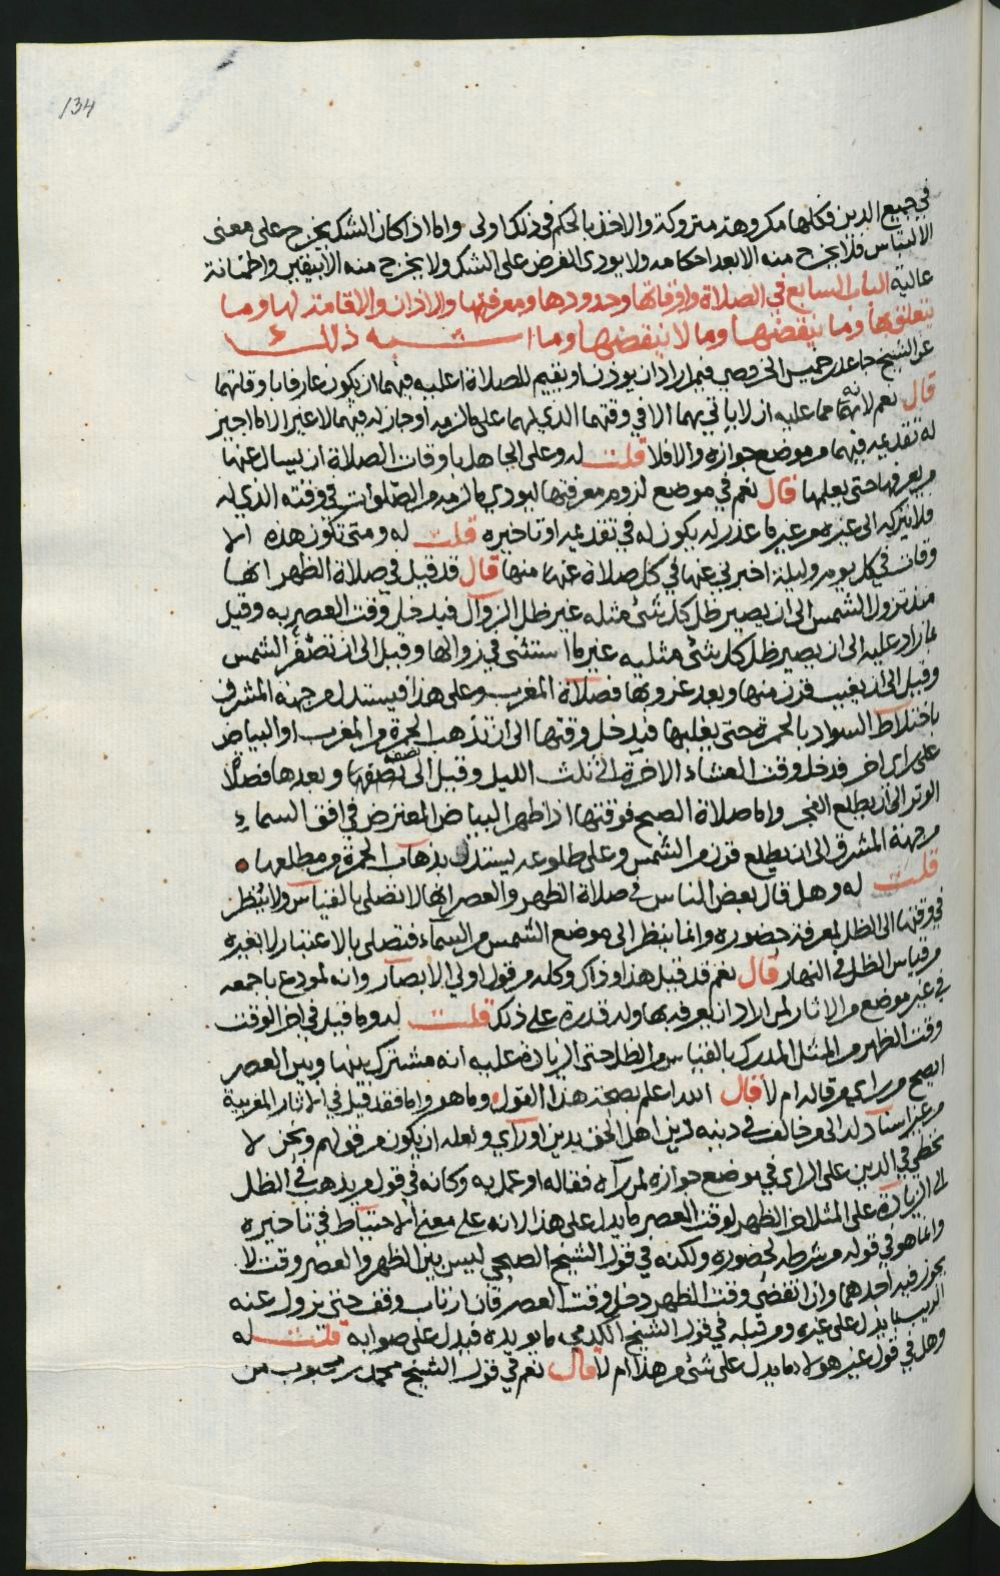 134
في جميع الدين فكلها مكروهة متروكة والاخذ بالحكم في ذلك اولى واما اذا كان الشك يخرج على معنى
الالتباس فلا يخرج منه الا بعد احكامه ولا يودى الفرض على الشك ولا يخرج منه الا بيقين واطمانة
عالية الباب السابع في الصلاة واوقاتها وحدودها ومعرفتها والاذان والاقامة لها وما
يتعلق بها وما ينقضها وما لا ينقضها وما اشبه ذلك
عن الشيخ جاعد بن خميس الخروصي فيمن اراد ان يوذن او يقيم للصلاة اعليه فيهما ان يكون عارفا باوقاتهما
قال نعم لانه مما عليه ان لا ياتي بهما الا في وقتهما الذي لهما على ما لزمه او جاز له فيهما لا غير الا ما اجيز
له تقديمه فيهما من موضع جوازه والا فلا قلت له وعلى الجاهل باوقات الصلاة ان يسال عنها
من يعرفها حتى يعلمها قال نعم في موضع لزوم معرفتها ليودي ما لزمه من الصلوات في وقته الذي له
فلا يتركه الى غيره من غير ما عذر له يكون له في تقديمه او تاخيره قلت له ومتى تكون هذه الا
وقات في كل يوم وليلة اخبرني عنها في كل صلاة عنها منها قال قد قيل في صلاة الظهر انها
منذ تزول الشمس الى ان يصير ظل كل شئ مثله غير ظل الزوال فيدخل وقت العصر به وقيل
بما زاد عليه الى ان يصير ظل كل شئ مثليه غير ما استثنى في زوالها وقيل الى ان تصفر الشمس
وقيل الى ان يغيب قرن منها وبعد غروبها فصلاة المغرب وعلى هذا فيستدل من جهة المشرق
باختلاط السواد بالحمرة حتى يغلبها فيدخل وقتها الى ان تذهب الحمرة من المغرب او البياض
على راي اخر فدخل وقت العشاء الاخرة الى ثلث الليل وقيل الى نصفها نصفه وبعدها فصلاة
الوتر الى ان يطلع الفجر واما صلاة الصبح فوقتها اذا ظهر البياض المعترض في افق السماء
من جهة المشرق الى ان يطلع قرن من الشمس وعلى طلوعه يستدل بذهاب الحمرة من مطلعها
قلت له وهل قال بعض الناس في صلاة الظهر والعصر انها لا تصلى بالقياس ولا ينظر
في وقتها الى الظل لمعرفة حضوره وانما ينظر الى موضع الشمس من السماء فتصلى بالاعتبار لا بغيره
من قياس الظل في النهار قال نعم قد قيل هذا وذاك وكله من قول اولي الابصار وانه لمودع باجمعه
في غير موضع من الاثار لمن اراد ان يعرفه بها وله قدرة على ذلك قلت له وما قيل في اخر الوقت
وقت الظهر من المثل المدرك بالقياس من الظل حتى الزيادة عليه انه مشترك بينها وبين العصر
ايصح من راي من قاله ام لا قال الله اعلم بصحة هذا القول وما هو وانما فقد قيل في الاثار المغربية
من غير اسناد له الى من خالف في دينه لدين اهل الحق بدين او راي ولعله ان يكون من قولهم ونحن لا
نخطي في الدين على الراي في موضع جوازه لمن راه فقاله او عمل به وكانه في قول من يذهب في الظل
الى الزيادة على المثل لاخر الظهر لوقت العصر ما يدل على هذا لانه على معنى الاحتياط في تاخيره
وانما هو في قوله من شرطه لحضوره ولكنه في قول الشيخ الصبحي ليس بين الظهر والعصر وقت لا
يجوز فيه احدهما وان انقضى وقت الظهر دخل وقت العصر فان ارتاب وقف حتى يزول عنه
الريب ما يدل على غيره ومن قبله في قول الشيخ الكدمي ما يويده فيدل على صوابه قلت له
وهل في قول غير هولاء ما يدل على شئ من هذا ام لا قال نعم في قول الشيخ محمد بن محبوب من